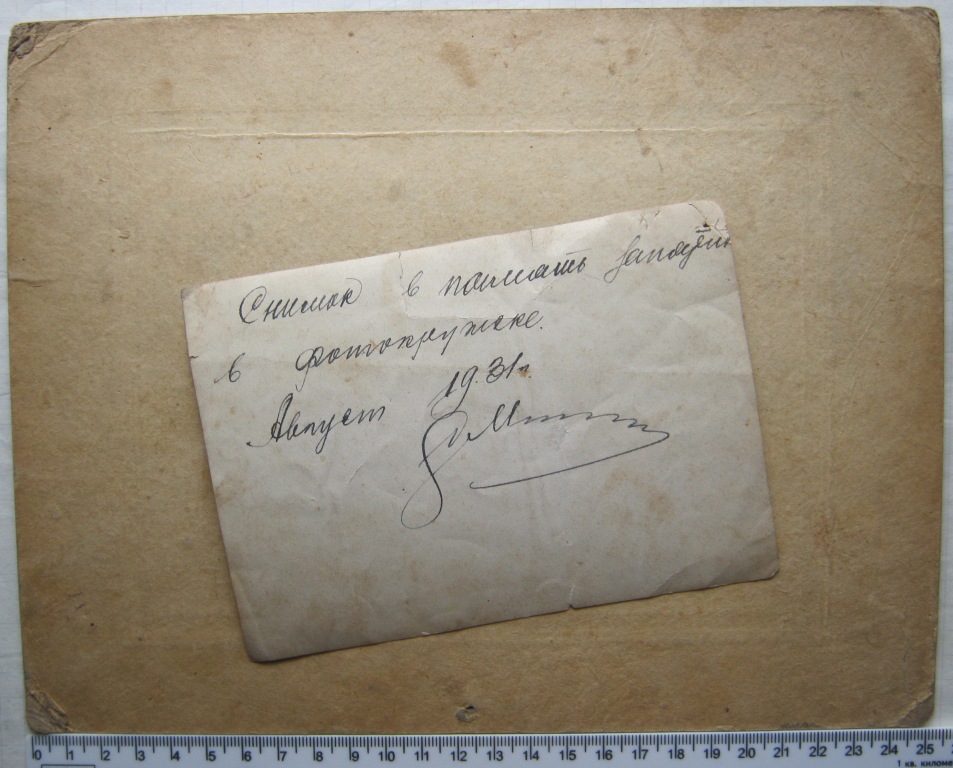 Снимок в память
в фотокружке.
Август 1931 г.
0 1 2 3 4 5 6 7 8 9 10 11 12 13 14 15 16 17 18 19 20 21 22 23 24 25
1 кв. киломе